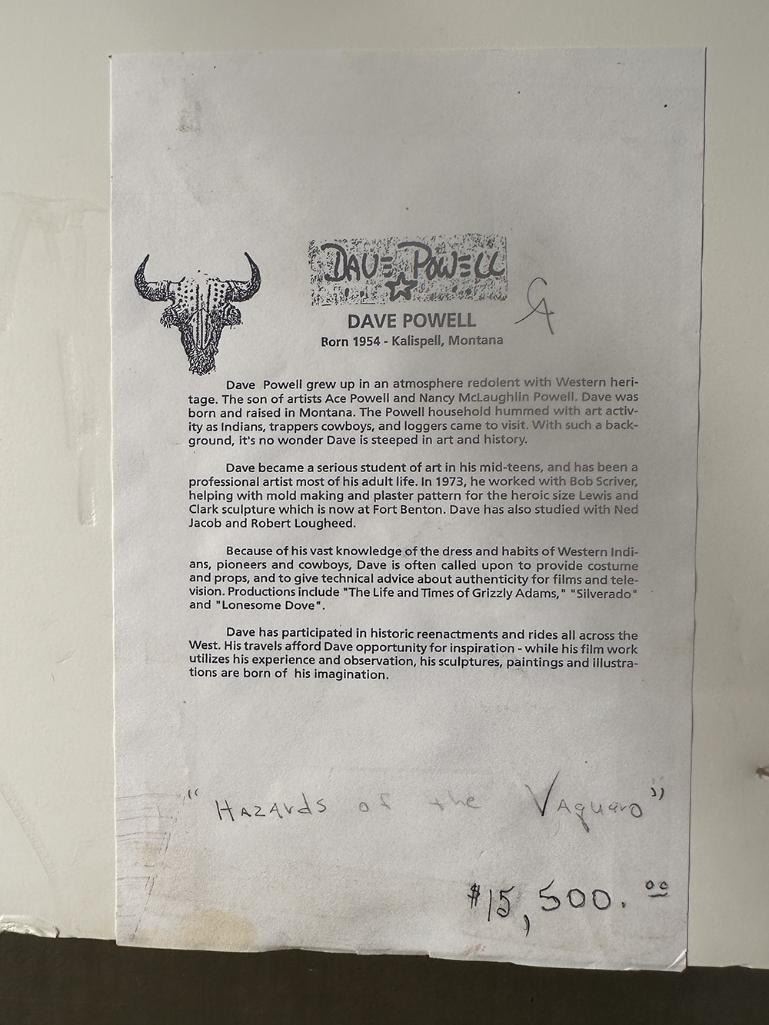 DAVE POWELL
DAVE POWELL
CA
Born 1954 - Kalispell, Montana
Dave Powell grew up in an atmosphere redolent with Western heri-
tage. The son of artists Ace Powell and Nancy McLaughlin Powell. Dave was
born and raised in Montana. The Powell household hummed with art activ-
ity as Indians, trappers cowboys, and loggers came to visit. With such a back-
ground, it's no wonder Dave is steeped in art and history.
Dave became a serious student of art in his mid-teens, and has been a
professional artist most of his adult life. In 1973, he worked with Bob Scriver,
helping with mold making and plaster pattern for the heroic size Lewis and
Clark sculpture which is now at Fort Benton. Dave has also studied with Ned
Jacob and Robert Lougheed.
Because of his vast knowledge of the dress and habits of Western Indi-
ans, pioneers and cowboys, Dave is often called upon to provide costume
and props, and to give technical advice about authenticity for films and tele-
vision. Productions include "The Life and Times of Grizzly Adams," "Silverado"
and "Lonesome Dove".
Dave has participated in historic reenactments and rides all across the
West. His travels afford Dave opportunity for inspiration - while his film work
utilizes his experience and observation, his sculptures, paintings and illustra-
tions are born of his imagination.
"HAZARds of the VAquaro"
$15,500.00